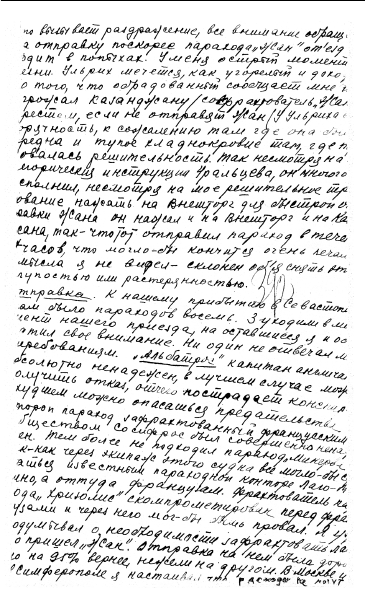 но вызывает раздражение, все внимание обращ
а отправку поскорее парохода „Жан" отъезд
одит в попыхах. У меня острый момент
ени. Ульрих мечется, как угорелый и дохо
о того, что обрадованный сообщает мне
грозил Казанджану /софрахтователь „Жан
рестом, если не отправят „Жан" /У Ульриха
рятность, к сожалению там где она бы
редна и тупое хладнокровие там, где п
овалась решительность. Так несмотря на
горический инструкции Уральцева, он много
сполнил, несмотря на мое решительное тр
ование нажать на Внешторг для быстрой о
равки Жана он нажал и на Внешторг и на Ка
сана, так-что тот отправил пароход в тече
часов, что могло-бы кончится очень печал
мысла я не вижу- склонен объяснять
упостью или растерянностью.
тправка. К нашему прибытию в Севастоп
ам было пароходов восемь. 3 уходили в
ент нашего приезда, на оставшиеся я и о
атил свое внимание. Ни один не отвечал
ребованиям. „Альбатрос" капитан англича
бсолютно ненадежен, в лучшем случае мож
олучить отказ, отчего пострадает конспи
худшем можно опасаться предательства
торой пароход зафрахтованный французским
бществом Сосифрос был совершенно нена
ен. Тем более не подходил пароход
к-как через экипаж этого судна все могло бы с
аться известным пароходной конторе
ино, а оттуда французам. Фрахтователь
ода скомпрометирован перед фран
узами и через него мог-бы быть провал. Я у
одумывал о необходимости зафрахтовать
о пришел „Жан". Отправка на нем была
о на 95% вернее, нежели на другом. В Москве и
Симферополе я настаивал что